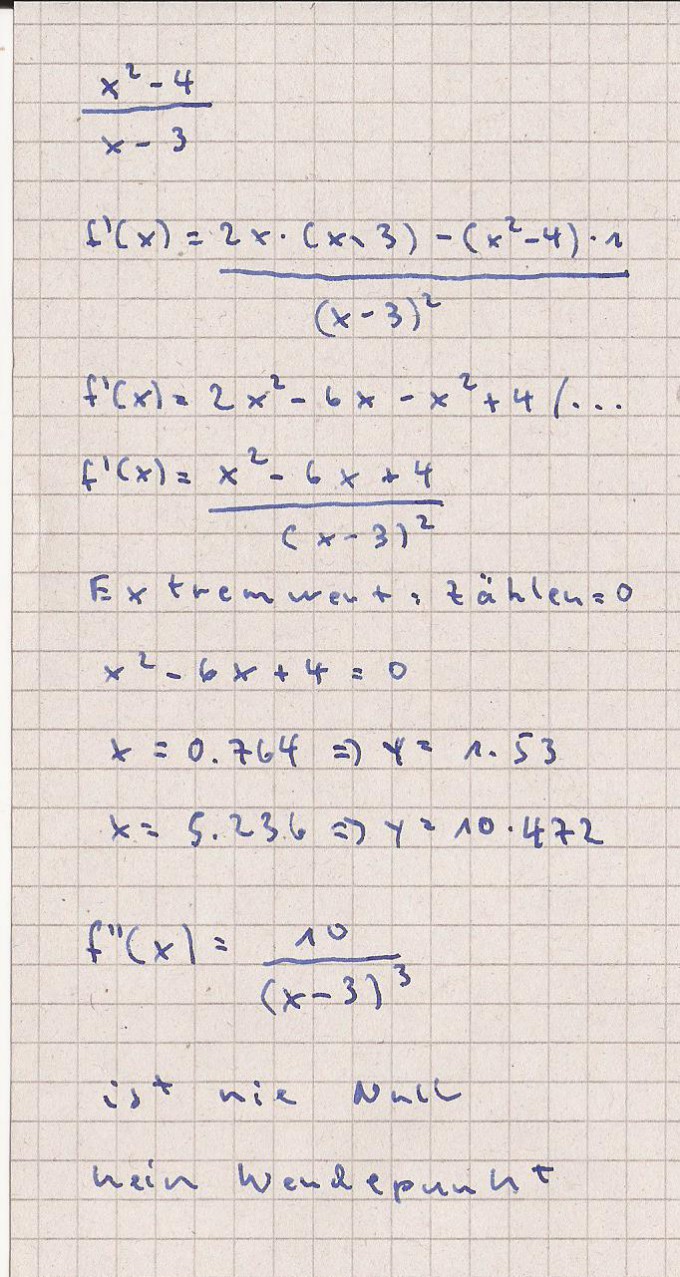 x² - 4
x - 3
f'(x) = 2x · (x - 3) - (x² - 4) · 1
(x - 3)²
f'(x) = 2x² - 6x - x² + 4 / ...
f'(x) = x² - 6x + 4
(x - 3)²
Extremwert: Zähler = 0
x² - 6x + 4 = 0
x = 0.764 => y = 1.53
x = 5.236 => y = 10.472
f''(x) = 10
(x - 3)³
ist nie Null
kein Wendepunkt